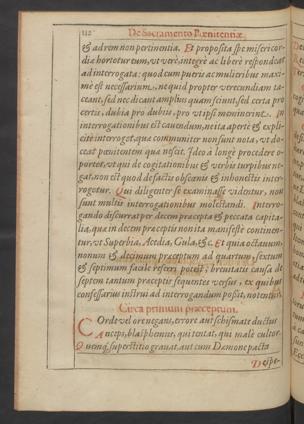 112 De Sacramento Pœnitentiæ
& ad rem non pertinentia. Et proposita spe misericor-
diæ hortetur eum, vt verè, integrè ac liberè respondeat
ad interrogata: quod cum pueris ac mulieribus maxi-
mè est necessarium, ne quid propter verecundiam ta-
ceant, sed nec dicant amplius quam sciunt, sed certa pro
certis, dubia pro dubiis, pro vt ipsi meminerint. In
interrogationibus est cauendum, ne ita apertè & expli-
citè interroget, quæ communiter non sunt nota, vt do-
ceat pœnitentem qua nescit. Ideo à longè procedere o-
portet, vt qui de cogitationibus & verbis turpibus ne-
gat, non est quod de factis obscœnis & inhonestis inter-
rogetur. Qui diligenter se examinasse videntur, non
sunt multis interrogationibus molestandi. Interro-
gando discurrat per decem præcepta & peccata capita-
lia, quæ in decem præceptis non ita manifestè continen-
tur, vt Superbia, Acedia, Gula, & c. Et quia octauum,
nonum & decimum præceptum ad quartum, sextum
& septimum facilè referri potest, breuitatis causa de
septem tantum præceptis sequentes versus, ex quibus
confessarius instrui ad interrogandum possit, notentur.
Circa primum præceptum.
Corde vel ore negans, errore aut schismate ductus
Anceps, blasphemus, qui tentat, qui malè cultor
Quemq; superstitio grauat, aut cum Dæmone pacta
Despe-